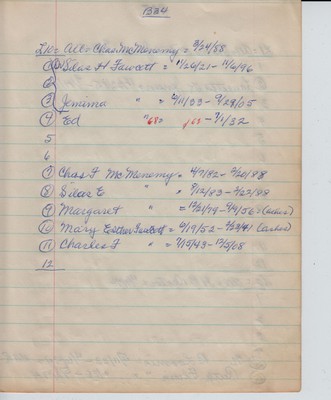 B34
L10 = All = Chas McMenomy = 3/24/88
① Silas H Fawcett = 11/26/21 - 11/6/96
②
③ Jemima " = 2/11/33 - 9/29/05
④ Ed " 68? - 7/1/32
5
6
⑦ Chas F McMenomy = 4/7/82 - 3/20/88
⑧ Silas E " = 9/12/83 - 2/27/88
⑨ Margaret " = 12/21/79 - 9/4/56 = (ashes)
⑩ Mary Esther Fawcett = 10/19/52 - 2/23/41 (ashes)
⑪ Charles F " = 7/15/43 - 12/5/08
12